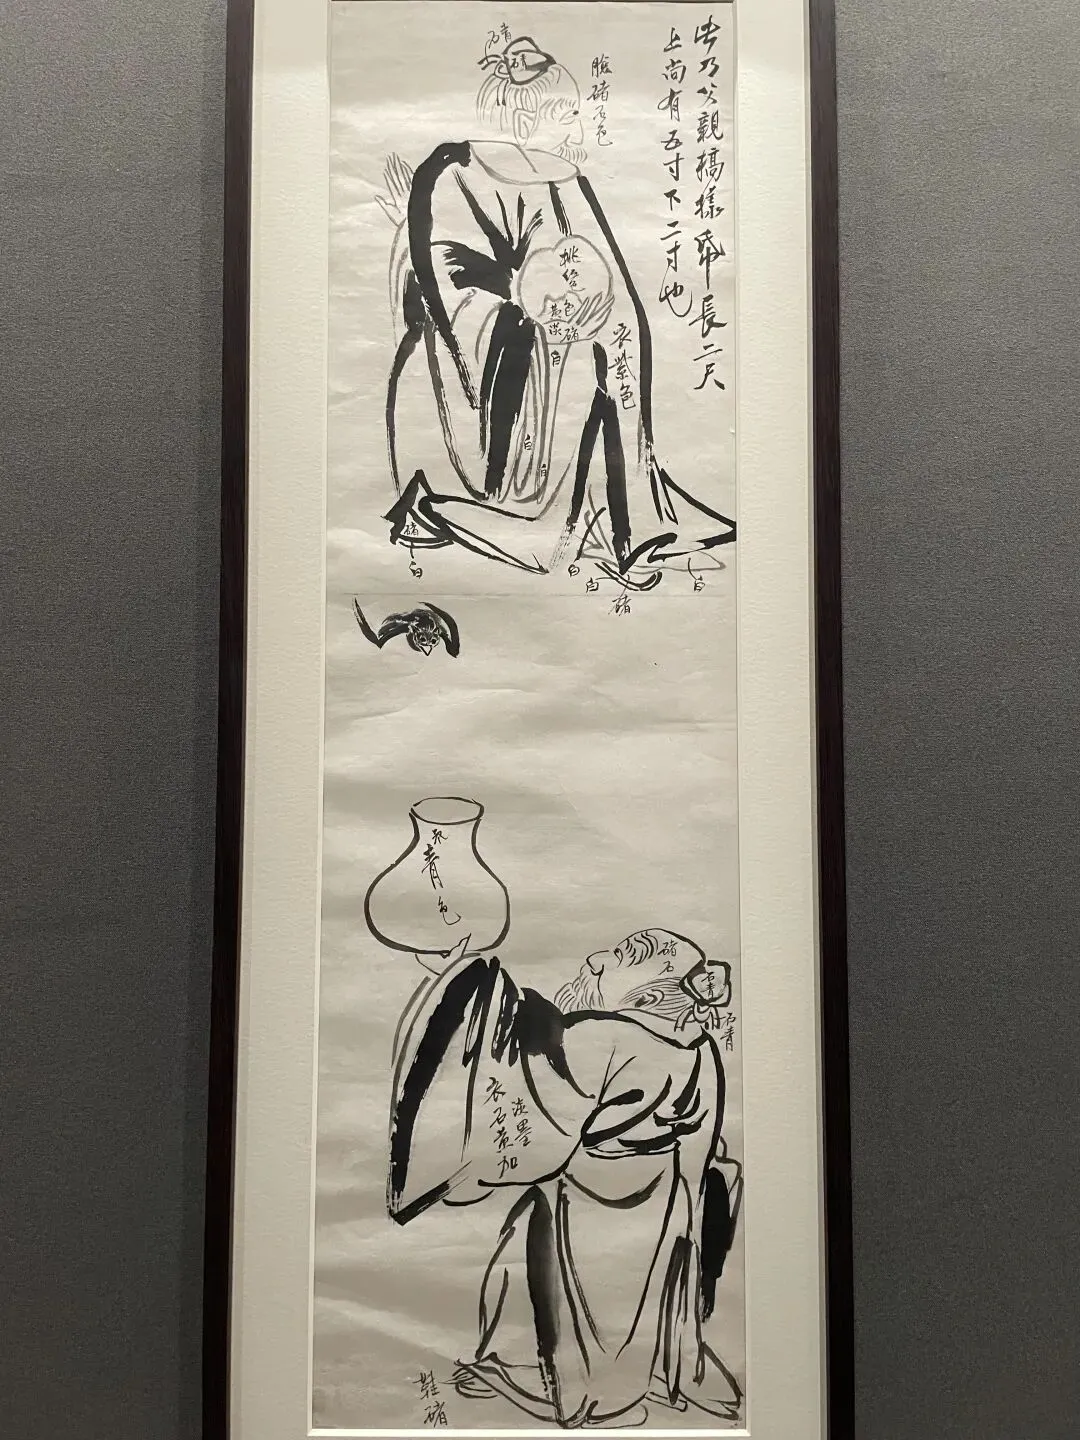 此乃公親稿樣紙長二尺
上尚有五寸下二寸也
石青
石青
臉赭石色
桃綠
色
黃
淡赭
衣紫色
白
白
白
赭
白
白
白
赭
白
青色
赭石
石青
石青
衣石黃加
淡墨
鞋赭